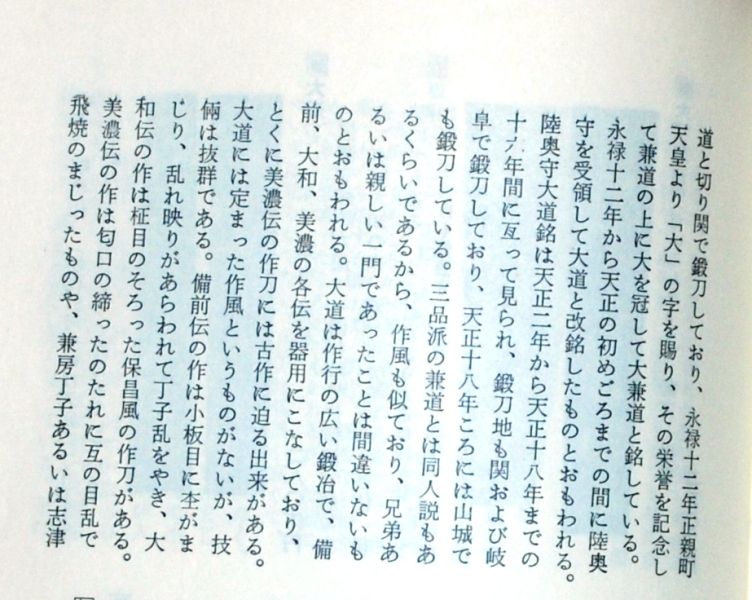 道と切り関で鍛刀しており、永禄十二年正親町
天皇より「大」の字を賜り、その栄誉を記念し
て兼道の上に大を冠して大兼道と銘している。
永禄十二年から天正の初めごろまでの間に陸奥
守を受領して大道と改銘したものとおもわれる。
陸奥守大道銘は天正二年から天正十八年までの
十六年間に亙って見られ、鍛刀地も関および岐
阜で鍛刀しており、天正十八年ころには山城で
も鍛刀している。三品派の兼道とは同人説もあ
るくらいであるから、作風も似ており、兄弟あ
るいは親しい一門であったことは間違いないも
のとおもわれる。大道は作行の広い鍛冶で、備
前、大和、美濃の各伝を器用にこなしており、
とくに美濃伝の作刀には古作に迫る出来がある。
大道には定まった作風というものがないが、技
倆は抜群である。備前伝の作は小板目に杢がま
じり、乱れ映りがあらわれて丁子乱をやき、大
和伝の作は柾目のそろった保昌風の作刀がある。
美濃伝の作は匂口の締ったのたれに互の目乱で
飛焼のまじったものや、兼房丁子あるいは志津